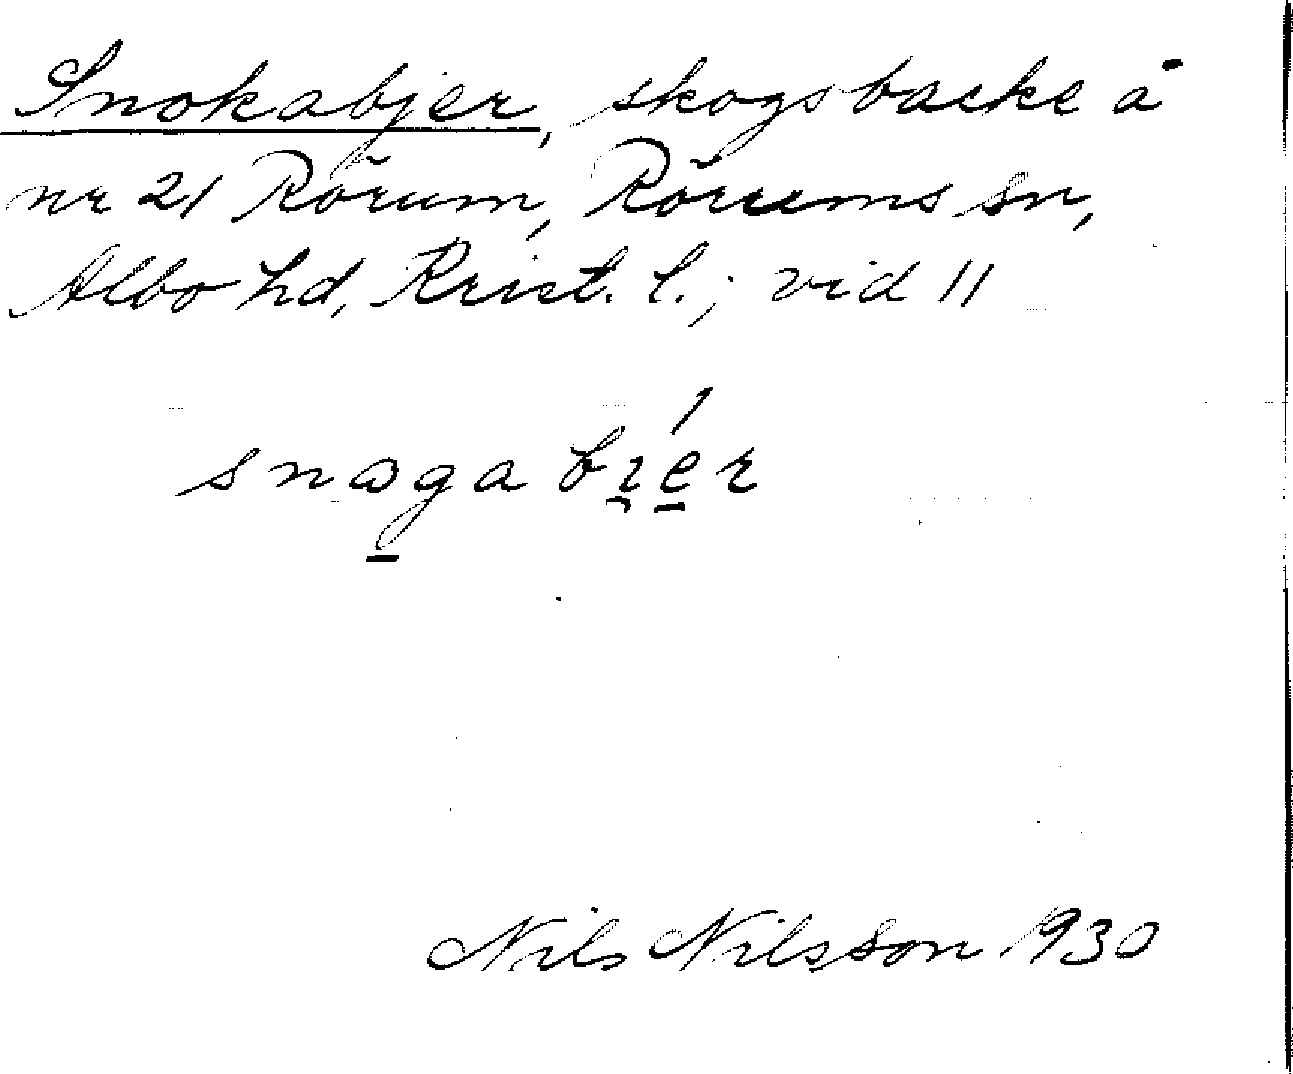 Snokabjer, skogsbacke å
nr 21 Rörum, Rörums sn,
Albo hd, Krist. l.; vid 11
snaga bı̯ér
Nils Nilsson 1930